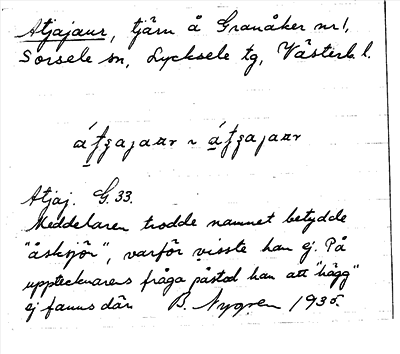 Atjajaur, tjärn å Granåker nr 1,
Sorsele sn, Lycksele tg, Västerb. l.
Atjaj. G. 33.
Meddelaren trodde namnet betydde
"åsksjör", varför visste han ej. På
upptecknarens fråga påstod han att "hägg"
ej fanns där B. Nygren 1935.